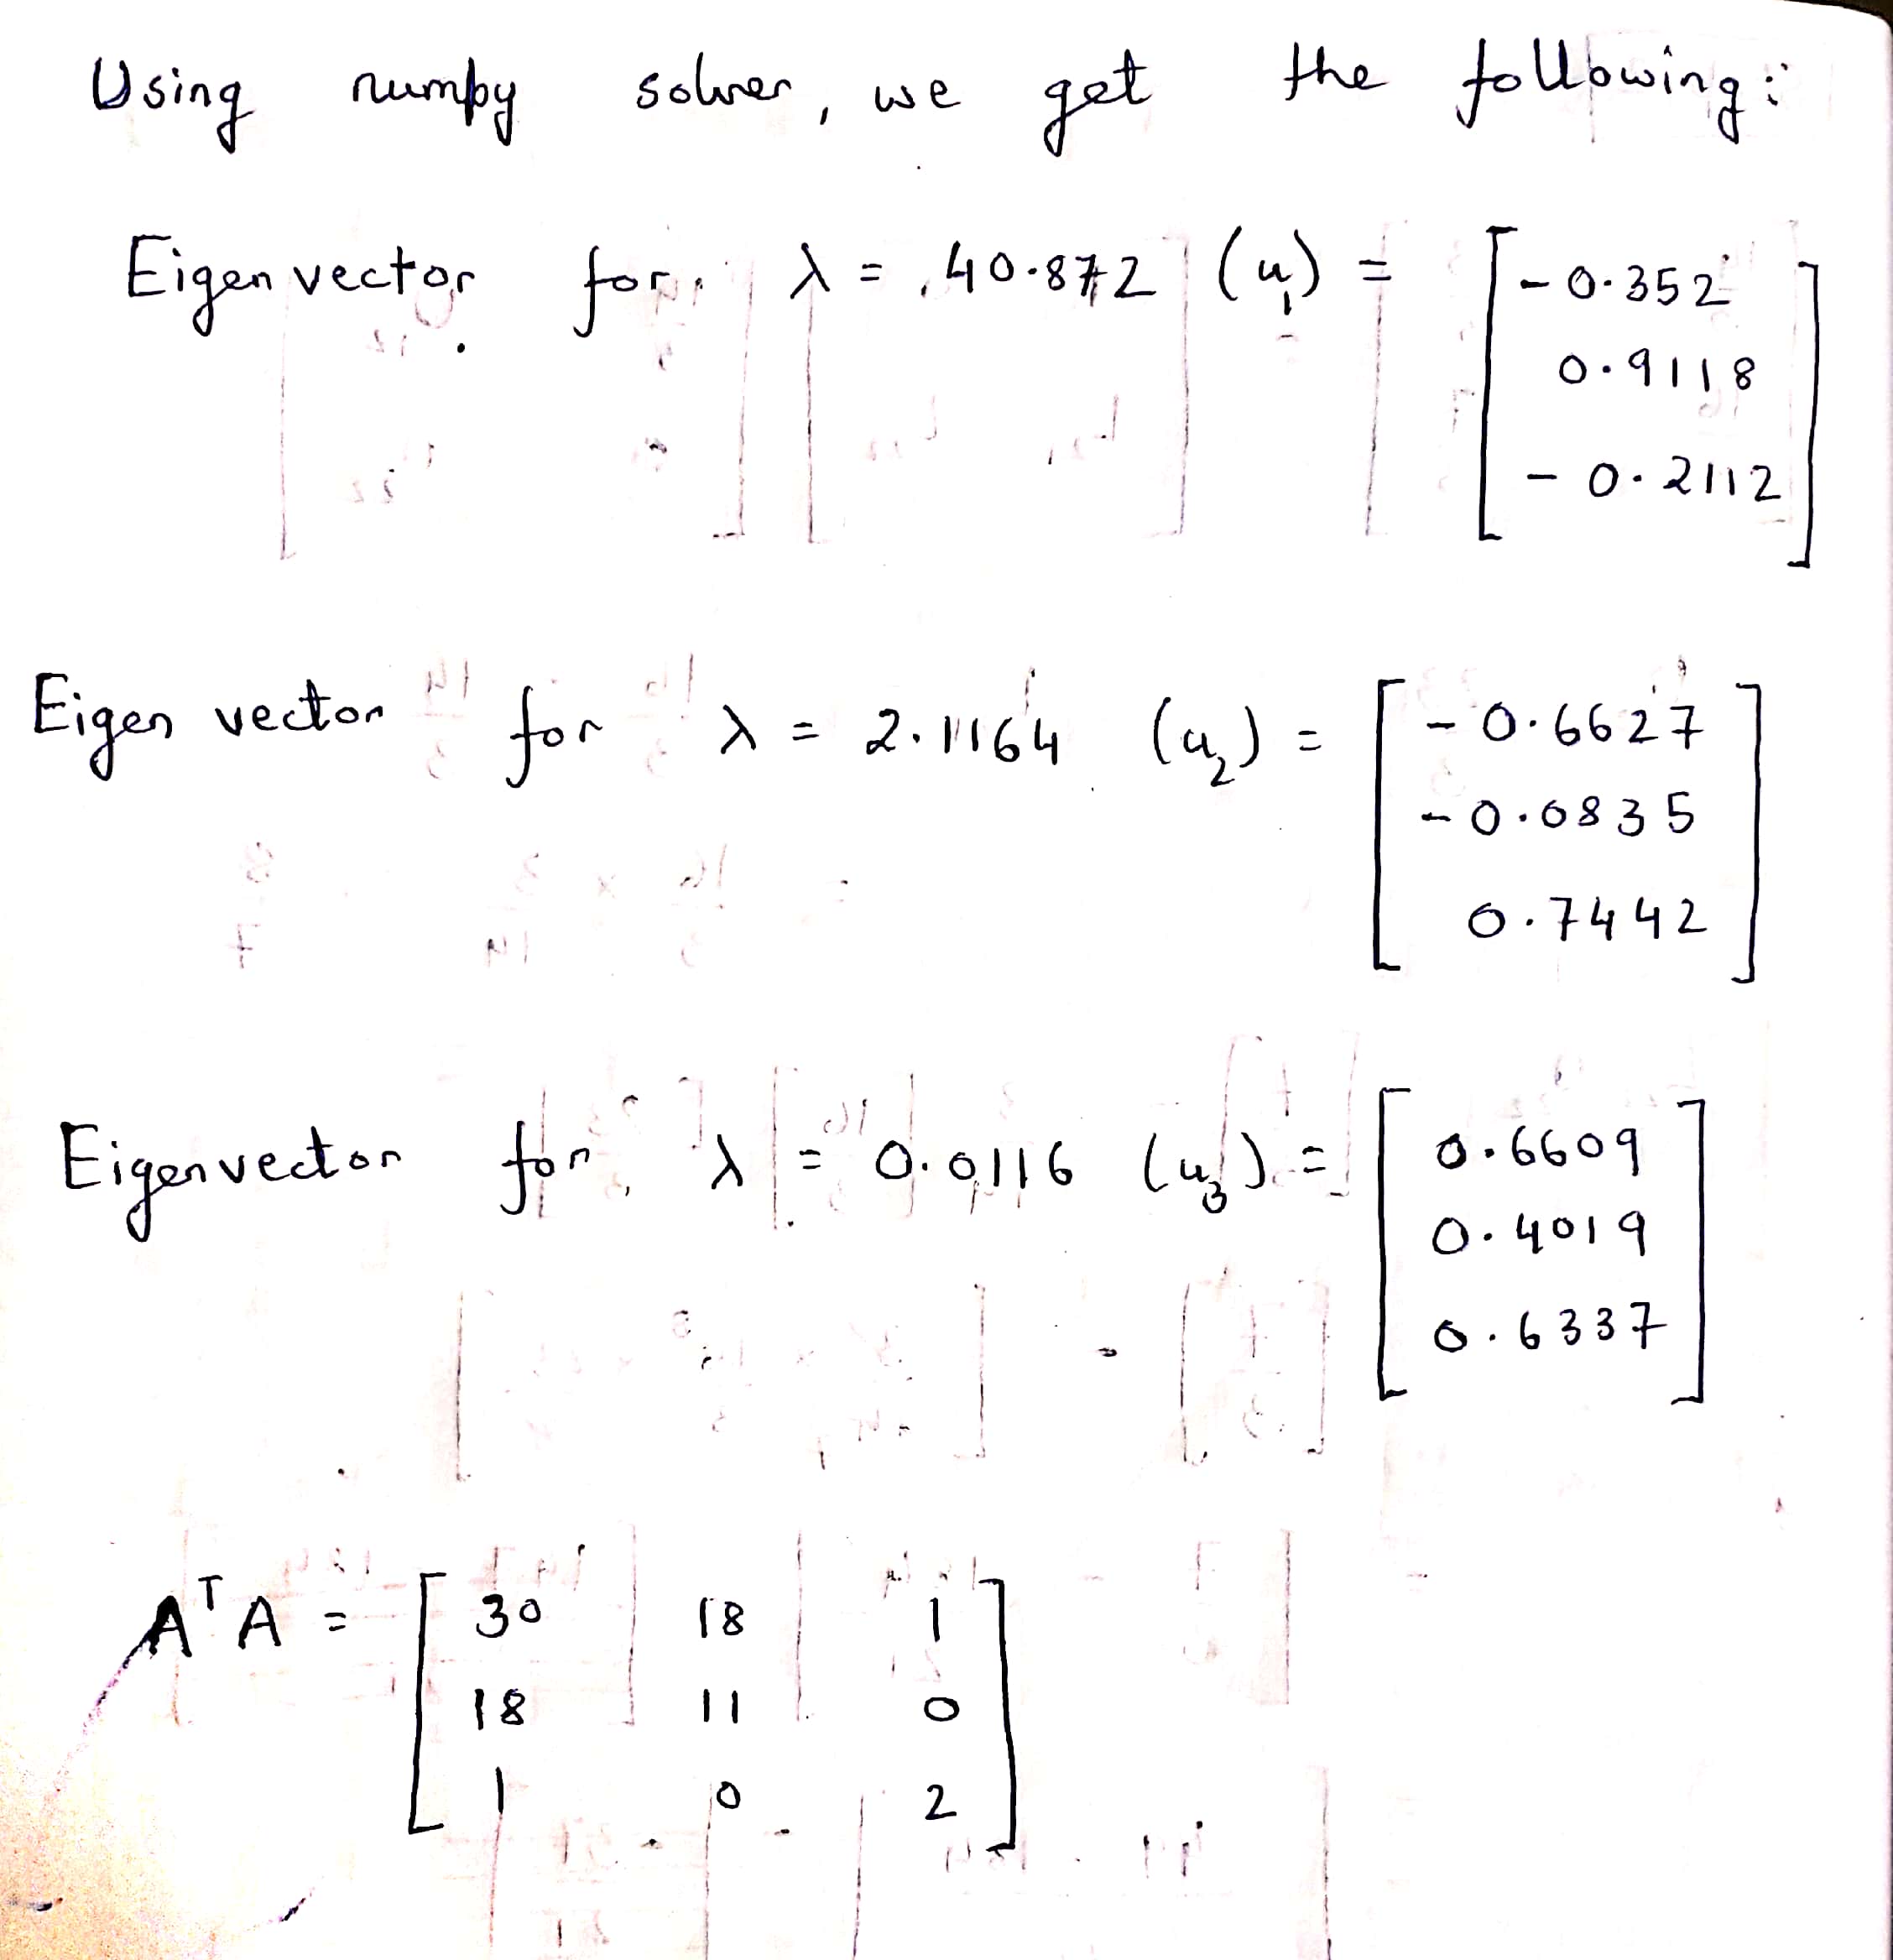 Using numpy solver, we get the following:
Eigen vector for λ = 40.872 (u₁) = [ -0.352
0.9118
-0.2112 ]
Eigen vector for λ = 2.1164 (u₂) = [ -0.6627
-0.0835
0.7442 ]
Eigenvector for λ = 0.0116 (u₃) = [ 0.6609
0.4019
0.6337 ]
AᵀA = [ 30 18 1
18 11 0
1 0 2 ]